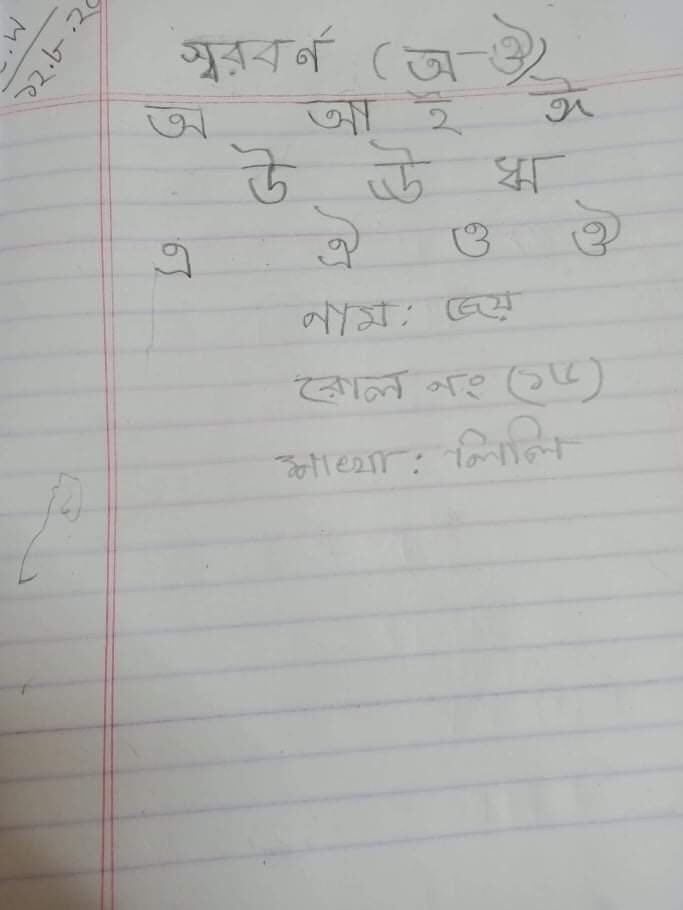 C.W
১২.৮.২০
স্বরবর্ন (অ-ঔ)
অ আ ই ঈ
উ ঊ ঋ
এ ঐ ও ঔ
নাম: জয়
রোল নং (১৫)
শাখা: লিলি